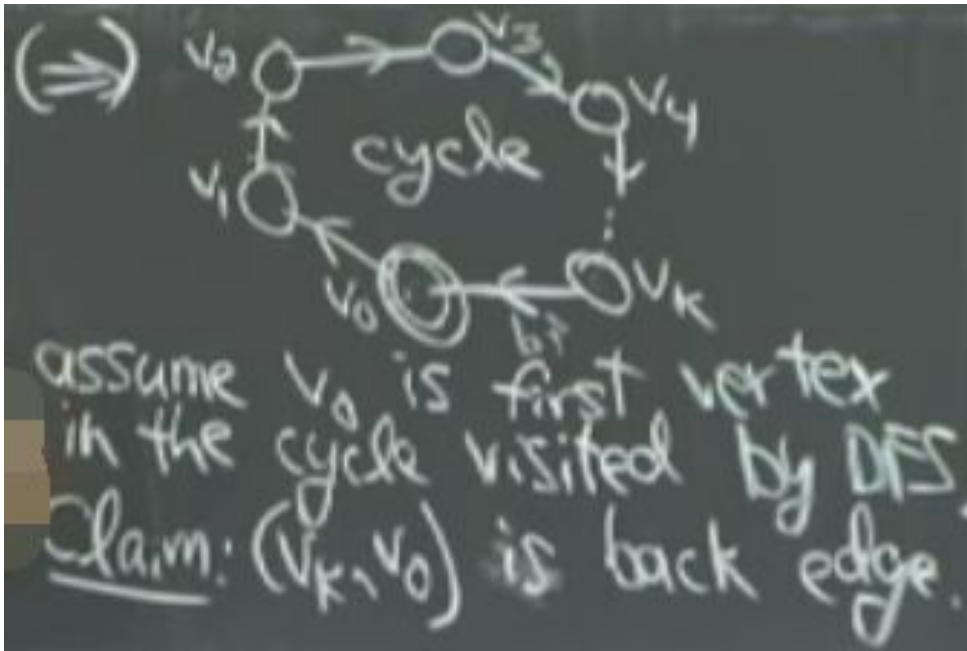 (⇒)
v₂
v₃
v₄
cycle
v₁
v₀
vₖ
b?
assume v₀ is first vertex
in the cycle visited by DFS.
Claim: (vₖ, v₀) is back edge.